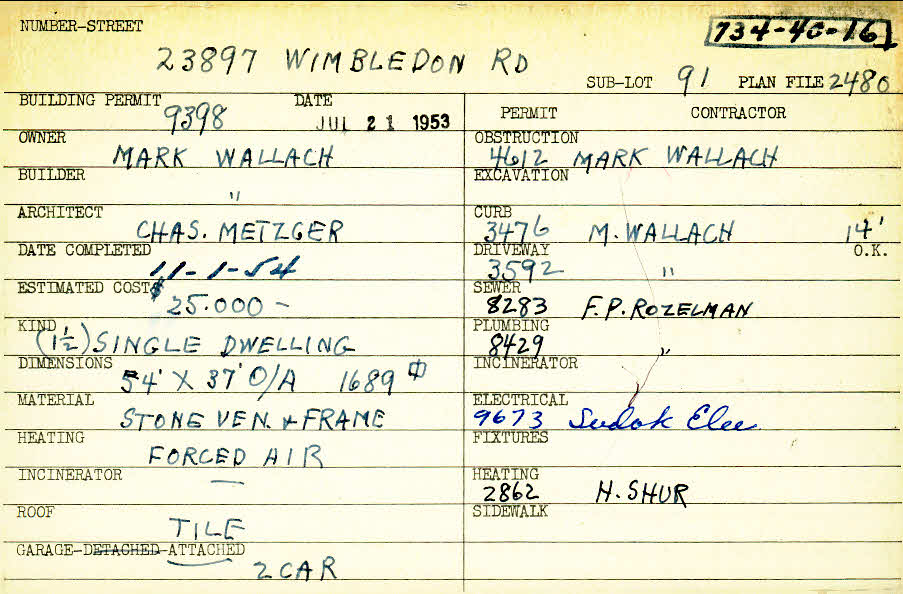 NUMBER-STREET
734-40-16
23897 WIMBLEDON RD
SUB-LOT 91 PLAN FILE 2480
BUILDING PERMIT DATE
9398 JUL 21 1953
PERMIT CONTRACTOR
OWNER
MARK WALLACH
OBSTRUCTION
4612 MARK WALLACH
BUILDER
"
EXCAVATION
ARCHITECT
CHAS. METZGER
CURB
3476 M. WALLACH 14'
DATE COMPLETED
11-1-54
DRIVEWAY O.K.
3592 "
ESTIMATED COST $
25.000 -
SEWER
8283 F.P. ROZELMAN
KIND
(1½) SINGLE DWELLING
PLUMBING
8429 "
DIMENSIONS
54' X 37' O/A 1689 ⏍
INCINERATOR
MATERIAL
STONE VEN. + FRAME
ELECTRICAL
9673 Sudok Elec.
HEATING
FORCED AIR
FIXTURES
INCINERATOR
—
HEATING
2862 H. SHUR
ROOF
TILE
SIDEWALK
GARAGE-DETACHED-ATTACHED
2 CAR